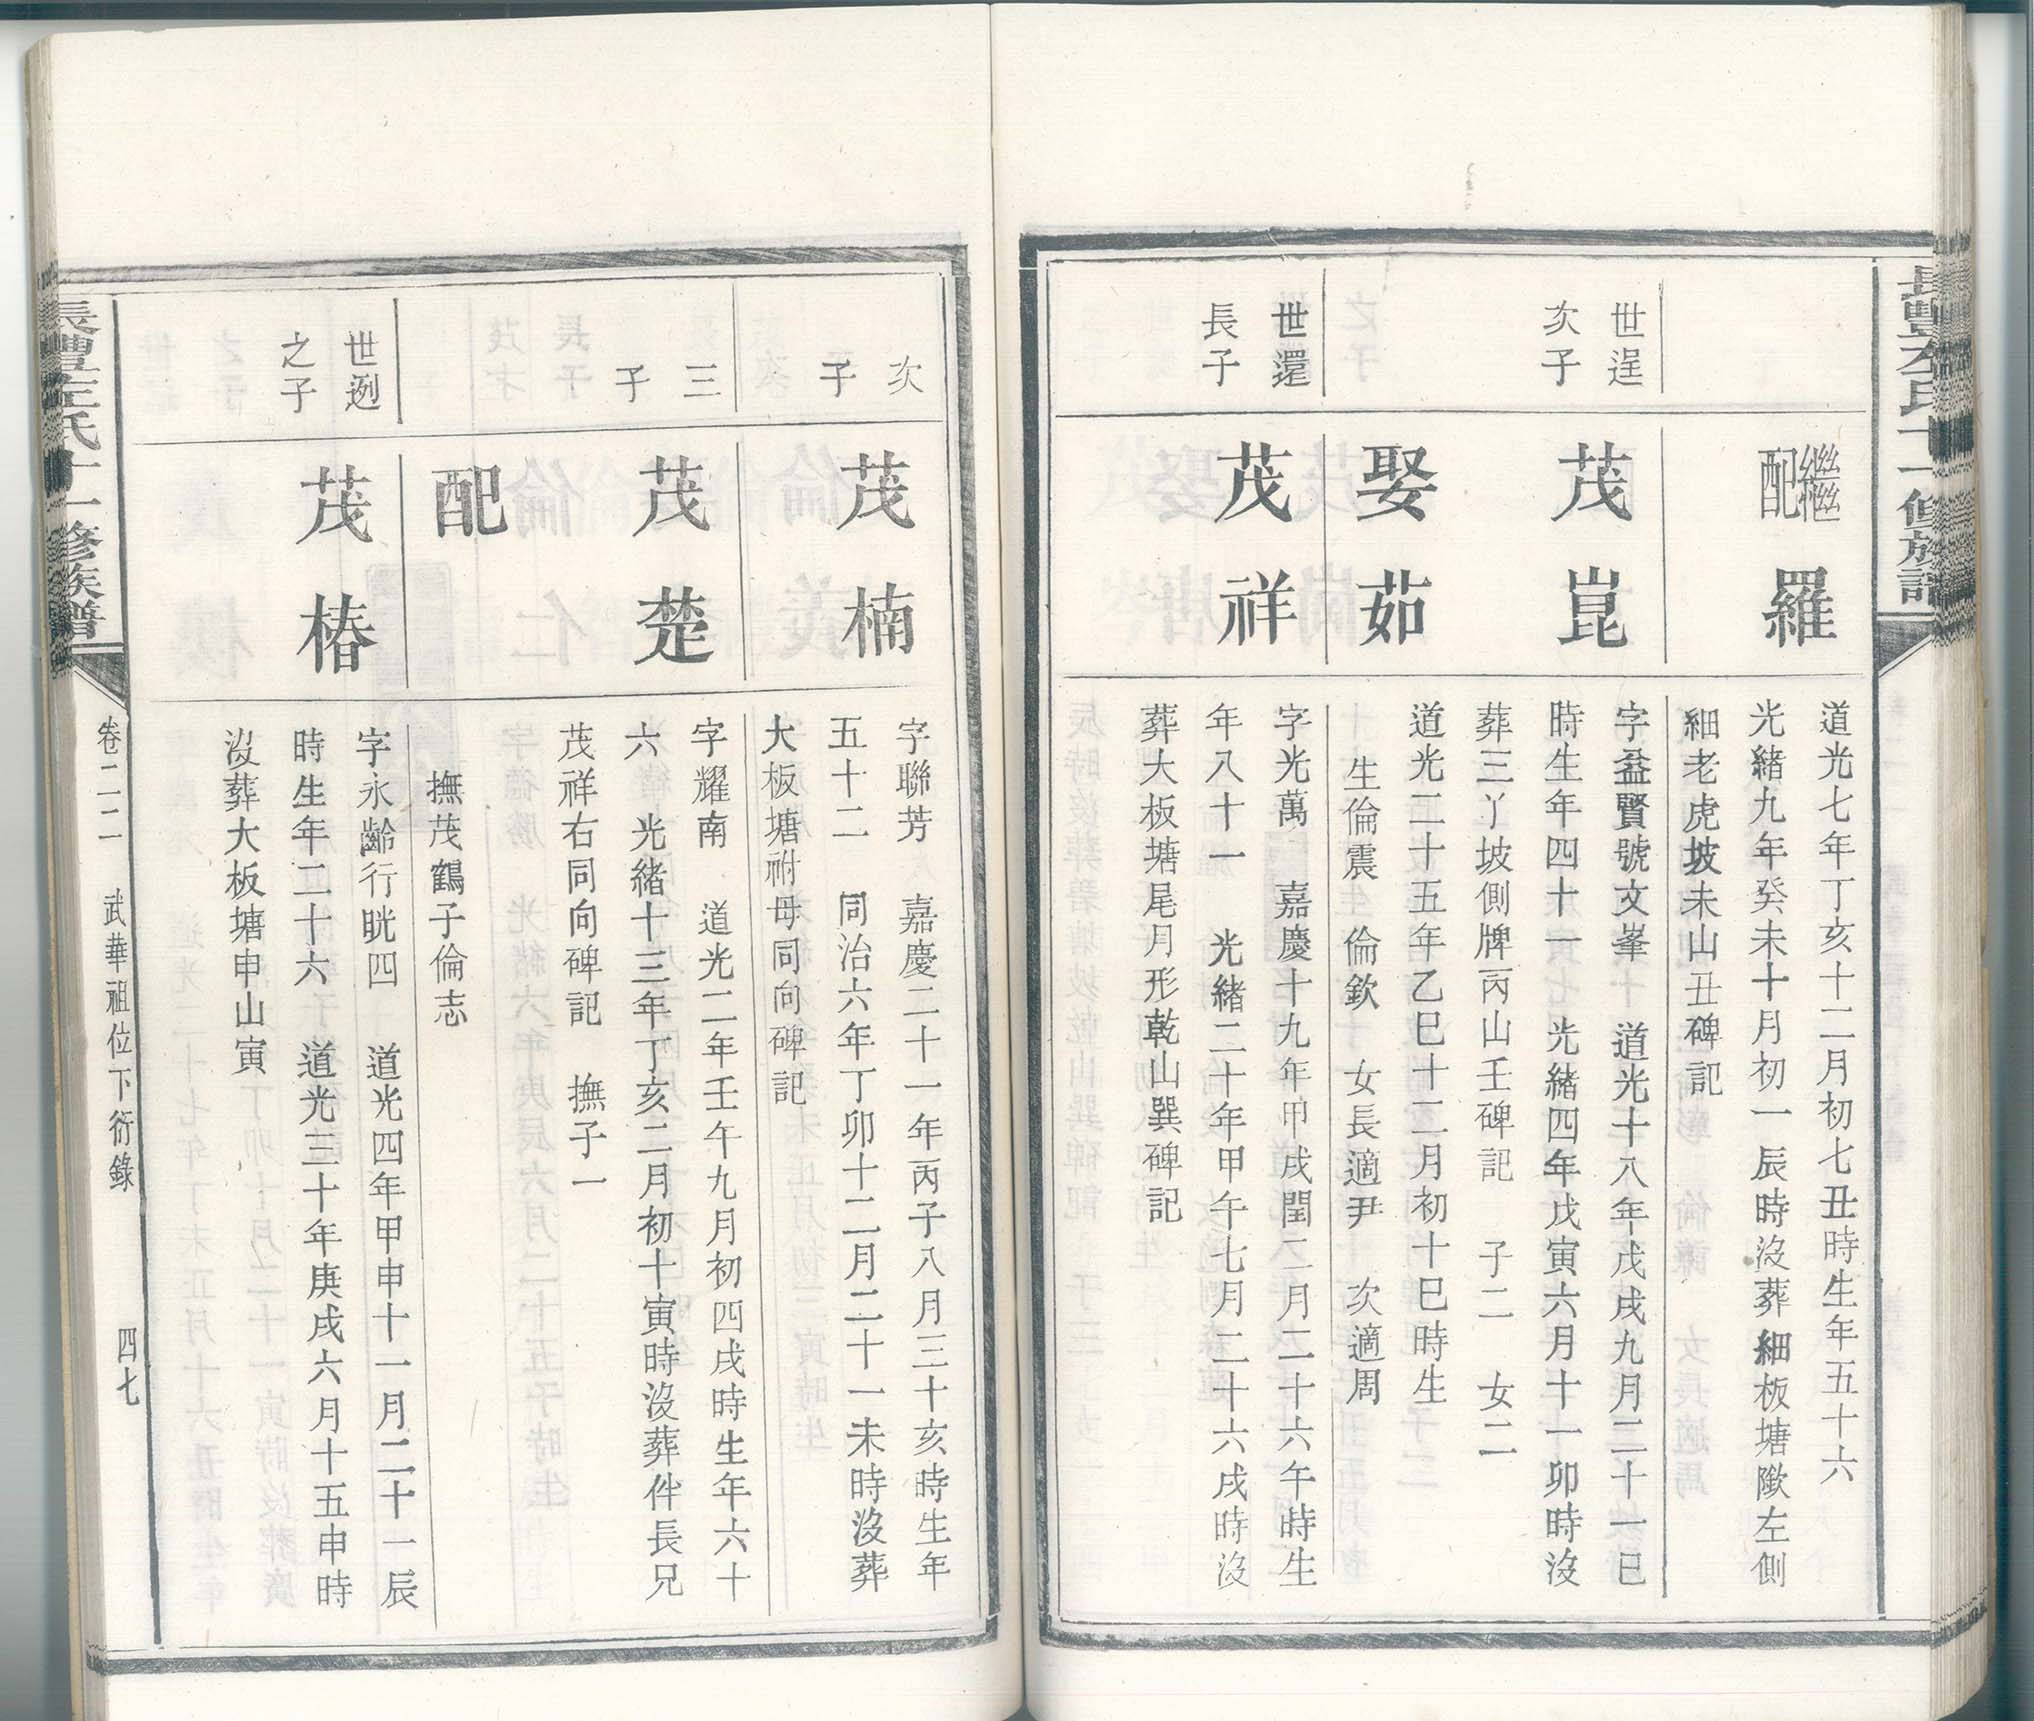 長豐左氏十一修族譜
繼配 羅
道光七年丁亥十二月初七丑時生年五十六
光緒九年癸未十月初一 辰時沒葬細板塘歐左側
細老虎坡未山丑碑記
世逞
次子
茂崑
字益賢號文峯 道光十八年戊戌九月二十一巳
時生年四十一 光緒四年戊寅六月十一卯時沒
葬三丫坡側牌丙山壬碑記 子二 女二
娶茹
道光二十五年乙巳十二月初十巳時生
生倫震 倫欽 女長適尹 次適周
世還
長子
茂祥
字光萬 嘉慶十九年甲戌閏二月二十六午時生
年八十一 光緒二十年甲午七月二十六戌時沒
葬大板塘尾月形乾山巽碑記
次子
茂楠
字聯芳 嘉慶二十一年丙子八月三十亥時生年
五十二 同治六年丁卯十二月二十一未時沒葬
大板塘祔母同向碑記
三子
茂楚
字耀南 道光二年壬午九月初四戌時生年六十
六 光緒十三年丁亥二月初十寅時沒葬伴長兄
茂祥右同向碑記 撫子一
配
撫茂鶴子倫志
世迾
之子
茂椿
字永齡行晄四 道光四年甲申十一月二十一辰
時生年二十六 道光三十年庚戌六月十五申時
沒葬大板塘申山寅
長豐左氏十一修族譜
卷二二 武華祖位下衍錄 四七